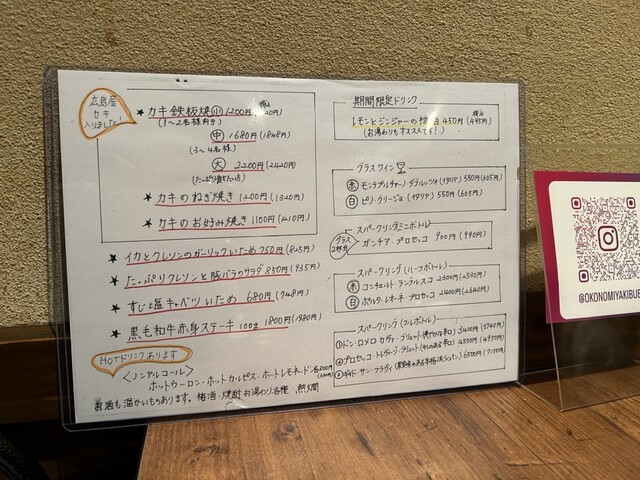 広島産
カキ
入りました!
★カキ鉄板焼 小 1200円 税込
(1~2名様向き)
中 1680円(1848円)
(3~4名様)
大 2200円(2420円)
★カキのねぎ焼き 1200円(1320円)
★カキのお好み焼き 1100円(1210円)
★イカとクレソンのガーリックいため 750円(825円)
★たーぷりクレソンと豚バラのサラダ 850円(935円)
★すじ塩キャベツいため 680円(748円)
★黒毛和牛赤身ステーキ 100g 1800円(1980円)
HOTドリンクあります
<ノンアルコール>
ホットウーロン・ホットカルピス・ホットレモネード
お酒も温かいものあります。梅酒・焼酎お湯わり各種
期間限定ドリンク
レモンとジンジャーの 450円(495円) 税込
(お湯わりもオススメです!)
グラスワイン
赤 モンテプルチャーノ・ダブルッツォ(イタリア) 550円(605円)
白 ピノ・グリージョ(イタリア) 550円(605円)
スパークリング(ミニボトル)
グラス2杯分
ガンチア・プロセッコ 900円(990円)
スパークリング(ハーフボトル)
赤
白 プロセッコ 2400円(2640円)
スパークリング(フルボトル)
① ドン・ロメロ カヴァ・ブリュット 3400円(3740円)
② プロセッコ 4500円(4950円)
③
@OKONOMIYAKIBUE